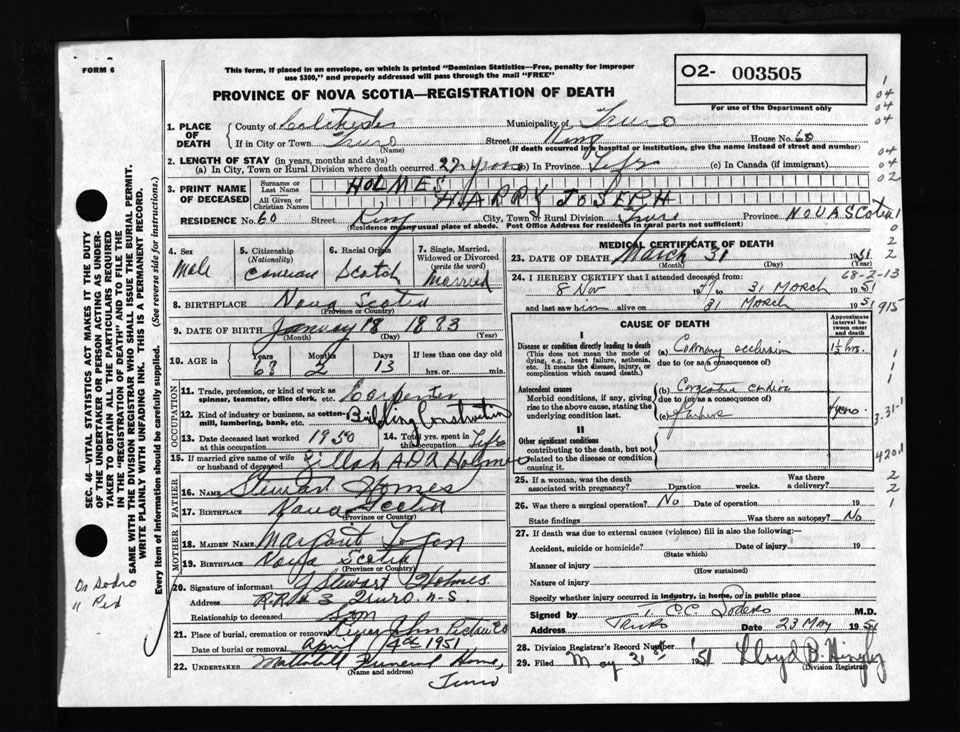 FORM 6
This form, if placed in an envelope, on which is printed "Dominion Statistics—Free, penalty for improper use $300," and properly addressed will pass through the mail "FREE"
O2- 003505
For use of the Department only
PROVINCE OF NOVA SCOTIA—REGISTRATION OF DEATH
SEC. 46—VITAL STATISTICS ACT MAKES IT THE DUTY
OF THE UNDERTAKER OR PERSON ACTING AS UNDER-
TAKER TO OBTAIN ALL THE PARTICULARS REQUIRED
IN THE "REGISTRATION OF DEATH" AND TO FILE THE
SAME WITH THE DIVISION REGISTRAR WHO SHALL ISSUE THE BURIAL PERMIT.
WRITE PLAINLY WITH UNFADING INK. THIS IS A PERMANENT RECORD.
Every item of information should be carefully supplied. (See reverse side for instructions.)
1. PLACE OF DEATH County of Colchester Municipality of Truro
If in City or Town Truro (Name) Street King House No. 60
(If death occurred in a hospital or institution, give name instead of street and number)
2. LENGTH OF STAY (in years, months and days)
(a) In City, Town or Rural Division where death occurred 27 years (b) In Province Life (c) In Canada (if immigrant)
3. PRINT NAME OF DECEASED Surname or Last Name HOLMES
All Given or Christian Names HARRY JOSEPH
RESIDENCE No. 60 Street King City, Town or Rural Division Truro Province NOVA SCOTIA
(Residence means usual place of abode. Post Office Address for residents in rural parts not sufficient)
4. Sex Male
5. Citizenship (Nationality)
6. Racial Origin Scotch
7. Single, Married, Widowed or Divorced (write the word) Married
8. BIRTHPLACE Nova Scotia
9. DATE OF BIRTH January 18 1883
(Month) (Day) (Year)
10. AGE in Years Months 2 Days 13 If less than one day
hrs. or min.
OCCUPATION
11. Trade, profession, or kind of work as spinner, teamster, office clerk, etc. Carpenter
12. Kind of industry or business, as cotton-mill, lumbering, bank, etc. Building Construction
13. Date deceased last worked at this occupation 1950
14. Total yrs. spent in this occupation Life
15. If married give name of wife or husband of deceased Zillah ADA Holmes
FATHER
16. NAME Stewart Homes
17. BIRTHPLACE Nova Scotia
(Province or Country)
MOTHER
18. MAIDEN NAME Margaret
19. BIRTHPLACE Nova Scotia
(Province or Country)
20. Signature of informant Stewart Holmes
Address R.R. # 3 Truro. N-S.
Relationship to deceased son
21. Place of burial, cremation or removal River John Pictou Co
Date of burial or removal April 1951
22. UNDERTAKER Funeral Home,
(Name and address)
Truro
MEDICAL CERTIFICATE OF DEATH
23. DATE OF DEATH March 31 1951
(Month) (Day) (Year)
24. I HEREBY CERTIFY that I attended deceased from:
8 Nov 19 to 31 MARCH 1951
and last saw him alive on 31 MARCH 1951
CAUSE OF DEATH
Approximate interval between onset and death
I
Disease or condition directly leading to death
(This does not mean the mode of dying, e.g., heart failure, asthenia, etc. It means the disease, injury, or complication which caused death.)
(a) Coronary occlusion 1½ hrs.
due to (or as a consequence of)
Antecedent causes
Morbid conditions, if any, giving rise to the above cause, stating the underlying condition last.
(b) Congestive cardiac
due to (or as a consequence of)
failure years
II
Other significant conditions
contributing to the death, but not related to the disease or condition causing it.
25. If a woman, was the death associated with pregnancy? Duration weeks. Was there a delivery?
26. Was there a surgical operation? No Date of operation 19
State findings Was there an autopsy? No
27. If death was due to external causes (violence) fill in also the following:
Accident, suicide or homicide? Date of injury 19
(State which)
Manner of injury
(How sustained)
Nature of injury
Specify whether injury occurred in industry, in home, or in public place
Signed by T. C.C. Sodero M.D.
Address Truro Date 23 May 1951
28. Division Registrar's Record Number
29. Filed May 31st 1951 Lloyd B.
(Division Registrar)
1
04
04
04
04
04
02
1
0
2
2
68-2-13
915
1
1
1
3.31-1
420.1
2
2
1
Dr Sodro
" Ped